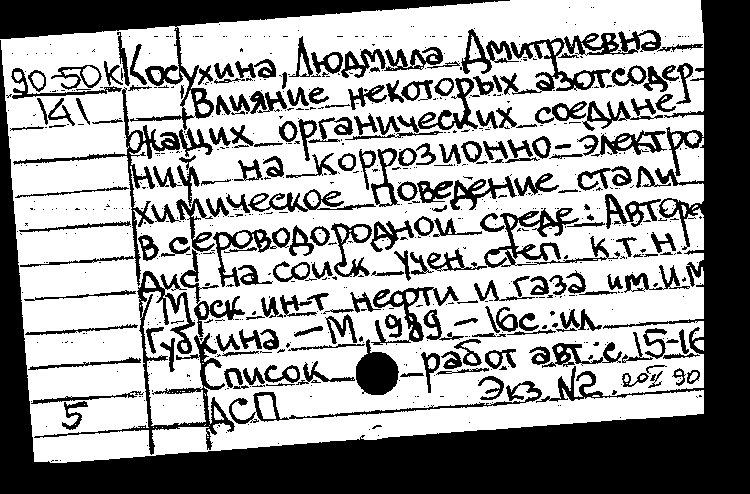 90-50К Косухина, Людмила Дмитриевна
141 Влияние некоторых азотсодер-
жащих органических соедине-
ний на коррозионно-электро
химическое поведение стали
в сероводородной среде: Авторе
дис. на соиск. учен. степ. к.т.н.
/ Моск. ин-т нефти и газа им. И.М
Губкина. - М., 1989. - 16с.: ил
Список работ авт.: с. 15-16
Экз. N2.
5 ДСП